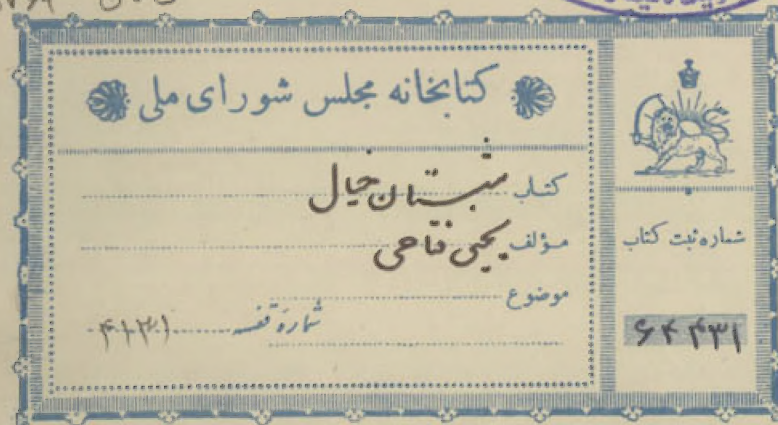 کتابخانه مجلس شورای ملی
کتاب شبستان خیال
مؤلف یحیی فتاحی
موضوع
شماره قفسه ۴۱۳۱
شماره ثبت کتاب
۶۴۴۳۱